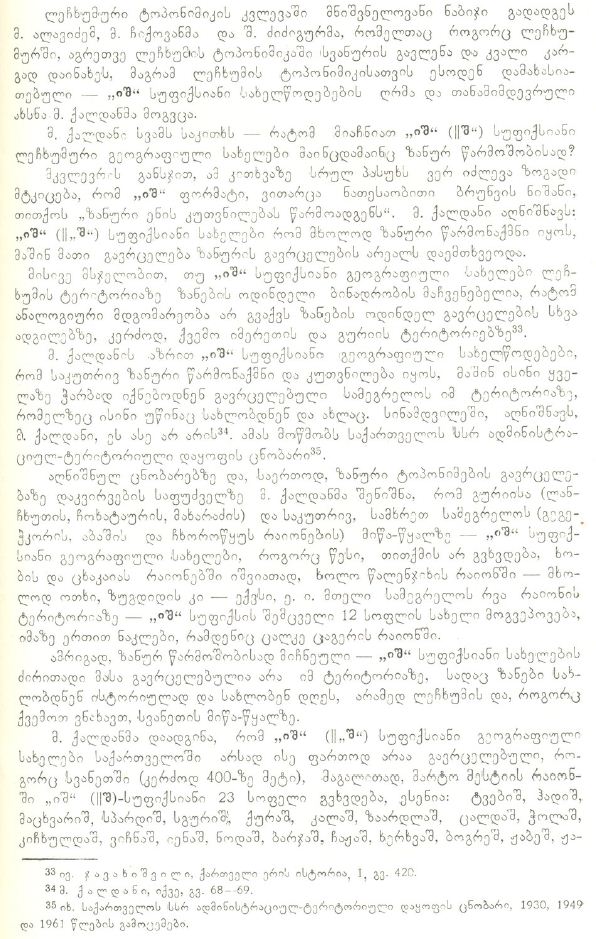 ლეჩხუმური ტოპონიმიკის კვლევაში მნიშვნელოვანი ნაბიჯი გადადგეს
მ. ალავიძემ, მ. ჩიქოვანმა და შ. ძიძიგურმა, რომელთაც როგორც ლეჩხუ-
მურში, აგრეთვე ლეჩხუმის ტოპონიმიკაში სვანურის გავლენა და კვალი კარ-
გად დაინახეს, მაგრამ ლეჩხუმის ტოპონიმიკისათვის ესოდენ დამახასია-
თებული — „იშ“ სუფიქსიანი სახელწოდებების ღრმა და თანამიმდევრული
ახსნა მ. ქალდანმა მოგვცა.
მ. ქალდანი სვამს საკითხს — რატომ მიაჩნიათ „იშ“ (||შ“) სუფიქსიანი
ლეჩხუმური გეოგრაფიული სახელები მაინცდამაინც ზანურ წარმოშობისად?
მკვლევრის განსჯით, ამ კითხვაზე სრულ პასუხს ვერ იძლევა ზოგადი
მტკიცება, რომ „იშ“ ფორმატი, ვითარცა ნათესაობითი ბრუნვის ნიშანი,
თითქოს „ზანური ენის კუთვნილებას წარმოადგენს“. მ. ქალდანი აღნიშნავს:
„იშ“ (||„შ“) სუფიქსიანი სახელები რომ მხოლოდ ზანური წარმონაქმნი იყოს,
მაშინ მათი გავრცელება ზანურის გავრცელების არეალს დაემთხვეოდა.
მისივე მსჯელობით, თუ „იშ“ სუფიქსიანი გეოგრაფიული სახელები ლეჩ-
ხუმის ტერიტორიაზე ზანების ოდინდელი ბინადრობის მაჩვენებელია, რატომ
ანალოგიური მდგომარეობა არ გვაქვს ზანების ოდინდელ გავრცელების სხვა
ადგილებზე, კერძოდ, ქვემო იმერეთის და გურიის ტერიტორიებზე³³.
მ. ქალდანის აზრით „იშ“ სუფიქსიანი გეოგრაფიული სახელწოდებები,
რომ საკუთრივ ზანური წარმონაქმნი და კუთვნილება იყოს, მაშინ ისინი ყვე-
ლაზე ჭარბად იქნებოდნენ გავრცელებული სამეგრელოს იმ ტერიტორიაზე,
რომელზეც ისინი უწინაც სახლობდნენ და ახლაც. სინამდვილეში, აღნიშნავს,
მ. ქალდანი, ეს ასე არ არის³⁴. ამას მოწმობს საქართველოს სსრ ადმინისტრა-
ციულ-ტერიტორიული დაყოფის ცნობარი³⁵.
აღნიშნულ ცნობარებზე და, საერთოდ, ზანური ტოპონიმების გავრცელე-
ბაზე დაკვირვების საფუძველზე მ. ქალდანმა შენიშნა, რომ გურიისა (ლან-
ჩხუთის, ჩოხატაურის, მახარაძის) და საკუთრივ, სამხრეთ სამეგრელოს (გეგე-
ჭკორის, აბაშის და ჩხოროწყუს რაიონების) მიწა-წყალზე — „იშ“ სუფიქ-
სიანი გეოგრაფიული სახელები, როგორც წესი, თითქმის არ გვხვდება, ხო-
ბის და ცხაკაიას რაიონებში იშვიათად, ხოლო წალენჯიხის რაიონში — მხო-
ლოდ ოთხი, ზუგდიდის კი — ექვსი, ე. ი. მთელი სამეგრელოს რვა რაიონის
ტერიტორიაზე — „იშ“ სუფიქსის შემცველი 12 სოფლის სახელი მოგვეპოვება,
იმაზე ერთით ნაკლები, რამდენიც ცალკე ცაგერის რაიონში.
ამრიგად, ზანურ წარმოშობისად მიჩნეული — „იშ“ სუფიქსიანი სახელების
ძირითადი მასა გავრცელებულია არა იმ ტერიტორიაზე, სადაც ზანები სახ-
ლობდნენ ისტორიულად და სახლობენ დღეს, არამედ ლეჩხუმის და, როგორც
ქვემოთ ვნახავთ, სვანეთის მიწა-წყალზე.
მ. ქალდანმა დაადგინა, რომ „იშ“ (||„შ“) სუფიქსიანი გეოგრაფიული
სახელები საქართველოში არსად ისე ფართოდ არაა გავრცელებული, რო-
გორც სვანეთში (კერძოდ 400-ზე მეტი), მაგალითად, მარტო მესტიის რაიონ-
ში „იშ“ (||შ)-სუფიქსიანი 23 სოფელი გვხვდება, ესენია: ტვებიშ, ჰადიშ,
მაცხვარიშ, სპარდიშ, სგურიშ, ქურაშ, კალაშ, ზაარდლაშ, ცალდაშ, ჭოლაშ,
კიჩხულდაშ, ვიჩნაშ, იენაშ, ნოდაშ, ბარჯაშ, ჩაჟაშ, ხერხვაშ, ბოგრეშ, ჟაბეშ, ჟა-
33 ივ. ჯავახიშვილი, ქართველი ერის ისტორია, I, გვ. 420.
34 მ. ქალდანი, იქვე, გვ. 68—69.
35 იხ. საქართველოს სსრ ადმინისტრაციულ-ტერიტორიული დაყოფის ცნობარი, 1930, 1949
და 1961 წლების გამოცემები.